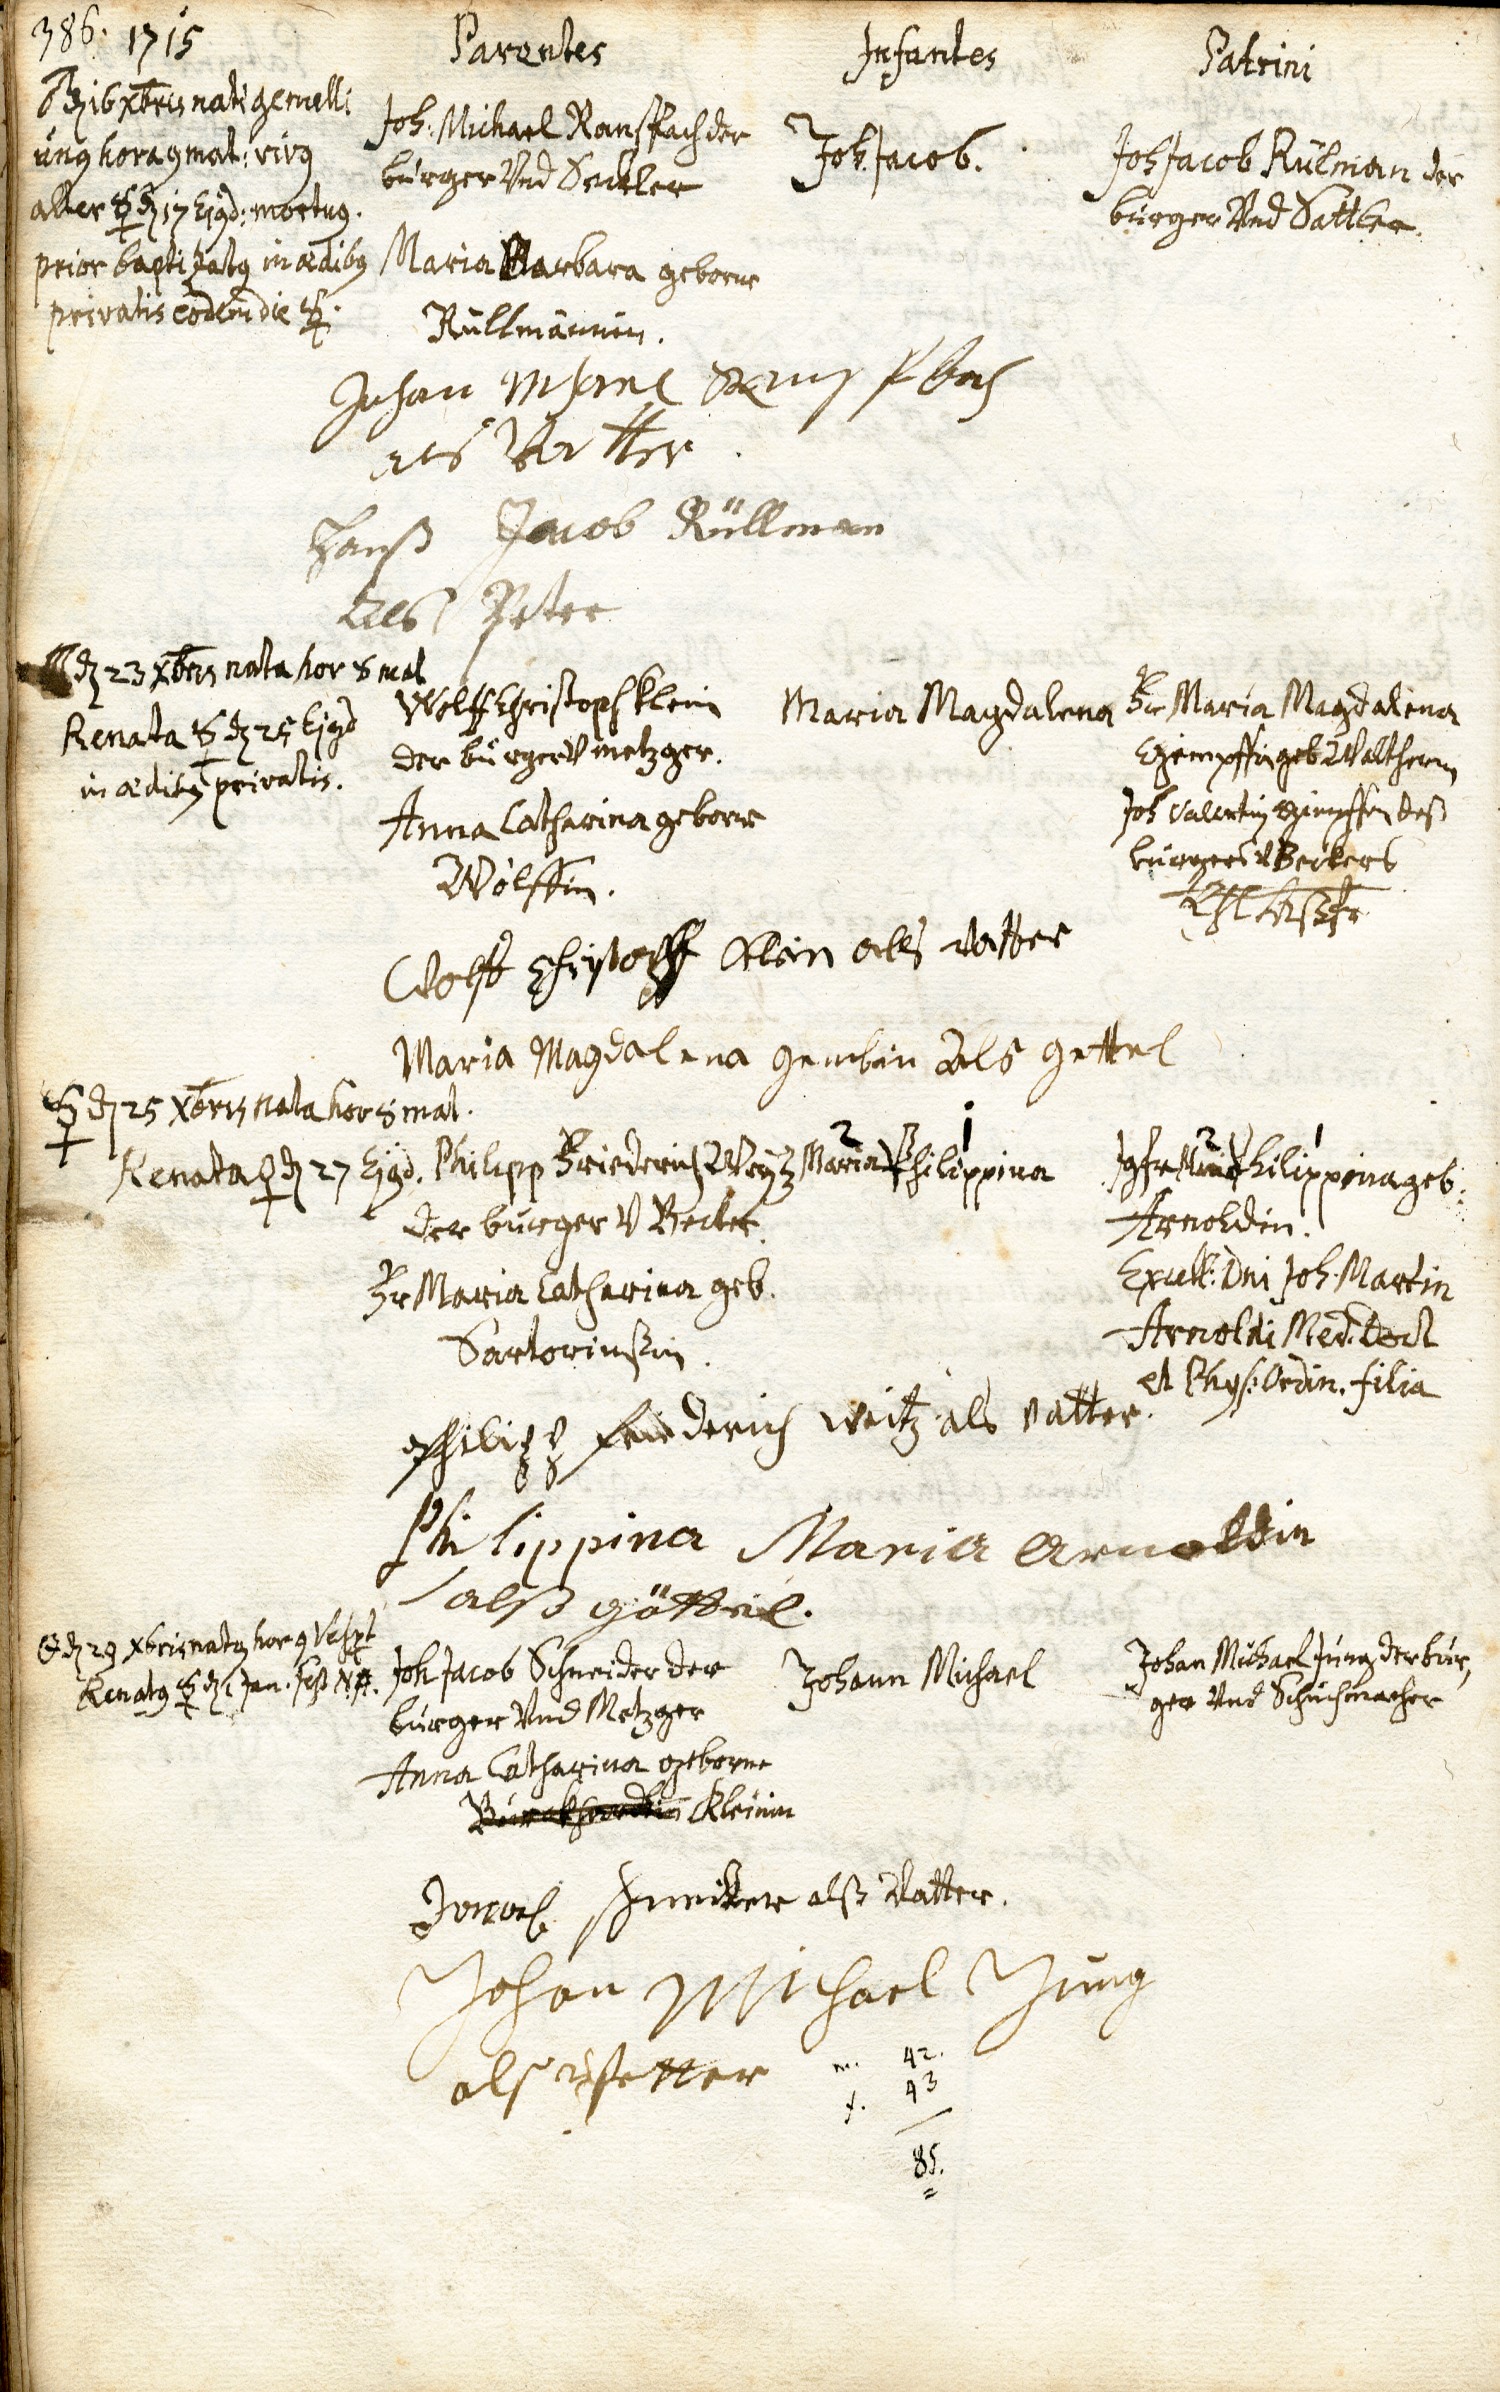 386. 1715
Parentes
Infantes
Patrini
d 16 xbris nati gemelli
unq hora 9 mat: vivq
alter d 17 Ejqd: mortuq.
prior baptizatq in ædibq
privatis eodem die
Joh: Michael Ranspach der
burger Vnd Seckler
Maria Barbara geborne
Rüllmännin.
Joh. Jacob.
Joh Jacob Rülman der
burger Vnd Sattler.
Johan
als Vatter
Hanß Jacob Rüllman
als Peter
d 23 xbris nata hor 8 mat
Renata d 25 Ejqd
in ædibq privatis.
Wolff Christoph Klein
der burger V metzger.
Anna Catharina geborne
Wölffin.
Maria Magdalena
Fr Maria Magdalena
geb Waltherin
Joh Valentin deß
burgers V Beckers
Wolff Christoff Klein alß vatter
Maria Magdalena als gettel
d 25 xbris nata hor 8 mat.
Renata d 27 Ejqd.
Philipp Friederich Weytz
der burger V Becker.
Fr Maria Catharina geb.
Sartoriußin.
2 1
Maria Philippina
2 1
Jgfr Maria Philippina geb.
Arnoldin.
Excell: Dni Joh. Martin
Arnoldi Med. Doct
et Phys: Ordin. filia
Philipp Friederich Weitz als vatter.
Philippina Maria Arnoldin
alß göttel.
d 29 xbris natq hor 9 Vespt
Renatq d 1 Jan. fest N. A.
Joh Jacob Schneider der
burger Vnd Metzger
Anna Catharina geborne
Kleinin
Johann Michael
Johan Michael Jung der bur,
ger Vnd Schuhmacher
Jacob Schneider alß Vatter.
Johan Michael Jung
als Pfetter
m. 42.
f. 43
85.